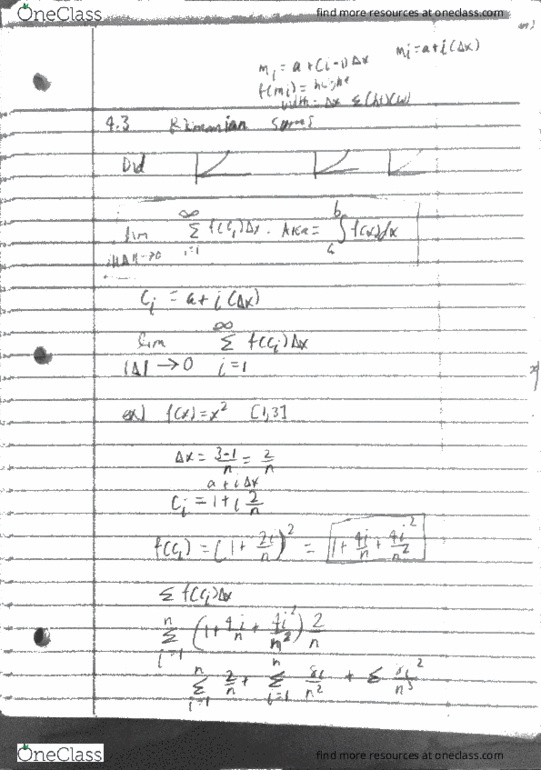 OneClass
find more resources at oneclass.com
mᵢ = a + i(Δx)
mᵢ = a + (i-1)Δx
f(mᵢ) = height
width = Δx Σ(ht)(w)
4.3 Riemannian Sums
Did
lim Σ f(Cᵢ)Δx . AKA = ∫ f(x)dx
i=1 ∞ a b
||Δ||→0
Cᵢ = a + i(Δx)
lim Σ f(Cᵢ)Δx
|Δ| → 0 i=1 ∞
ex) f(x) = x² [1,3]
Δx = 3-1/n = 2/n
a + iΔx
Cᵢ = 1 + i 2/n
f(Cᵢ) = (1 + 2i/n)² = 1 + 4i/n + 4i²/n²
Σ f(Cᵢ)Δx
n Σ i=1 (1 + 4i/n + 4i²/n²) 2/n
n Σ i=1 2/n + n Σ i=1 8i/n² + Σ 8i²/n³
OneClass
find more resources at oneclass.com